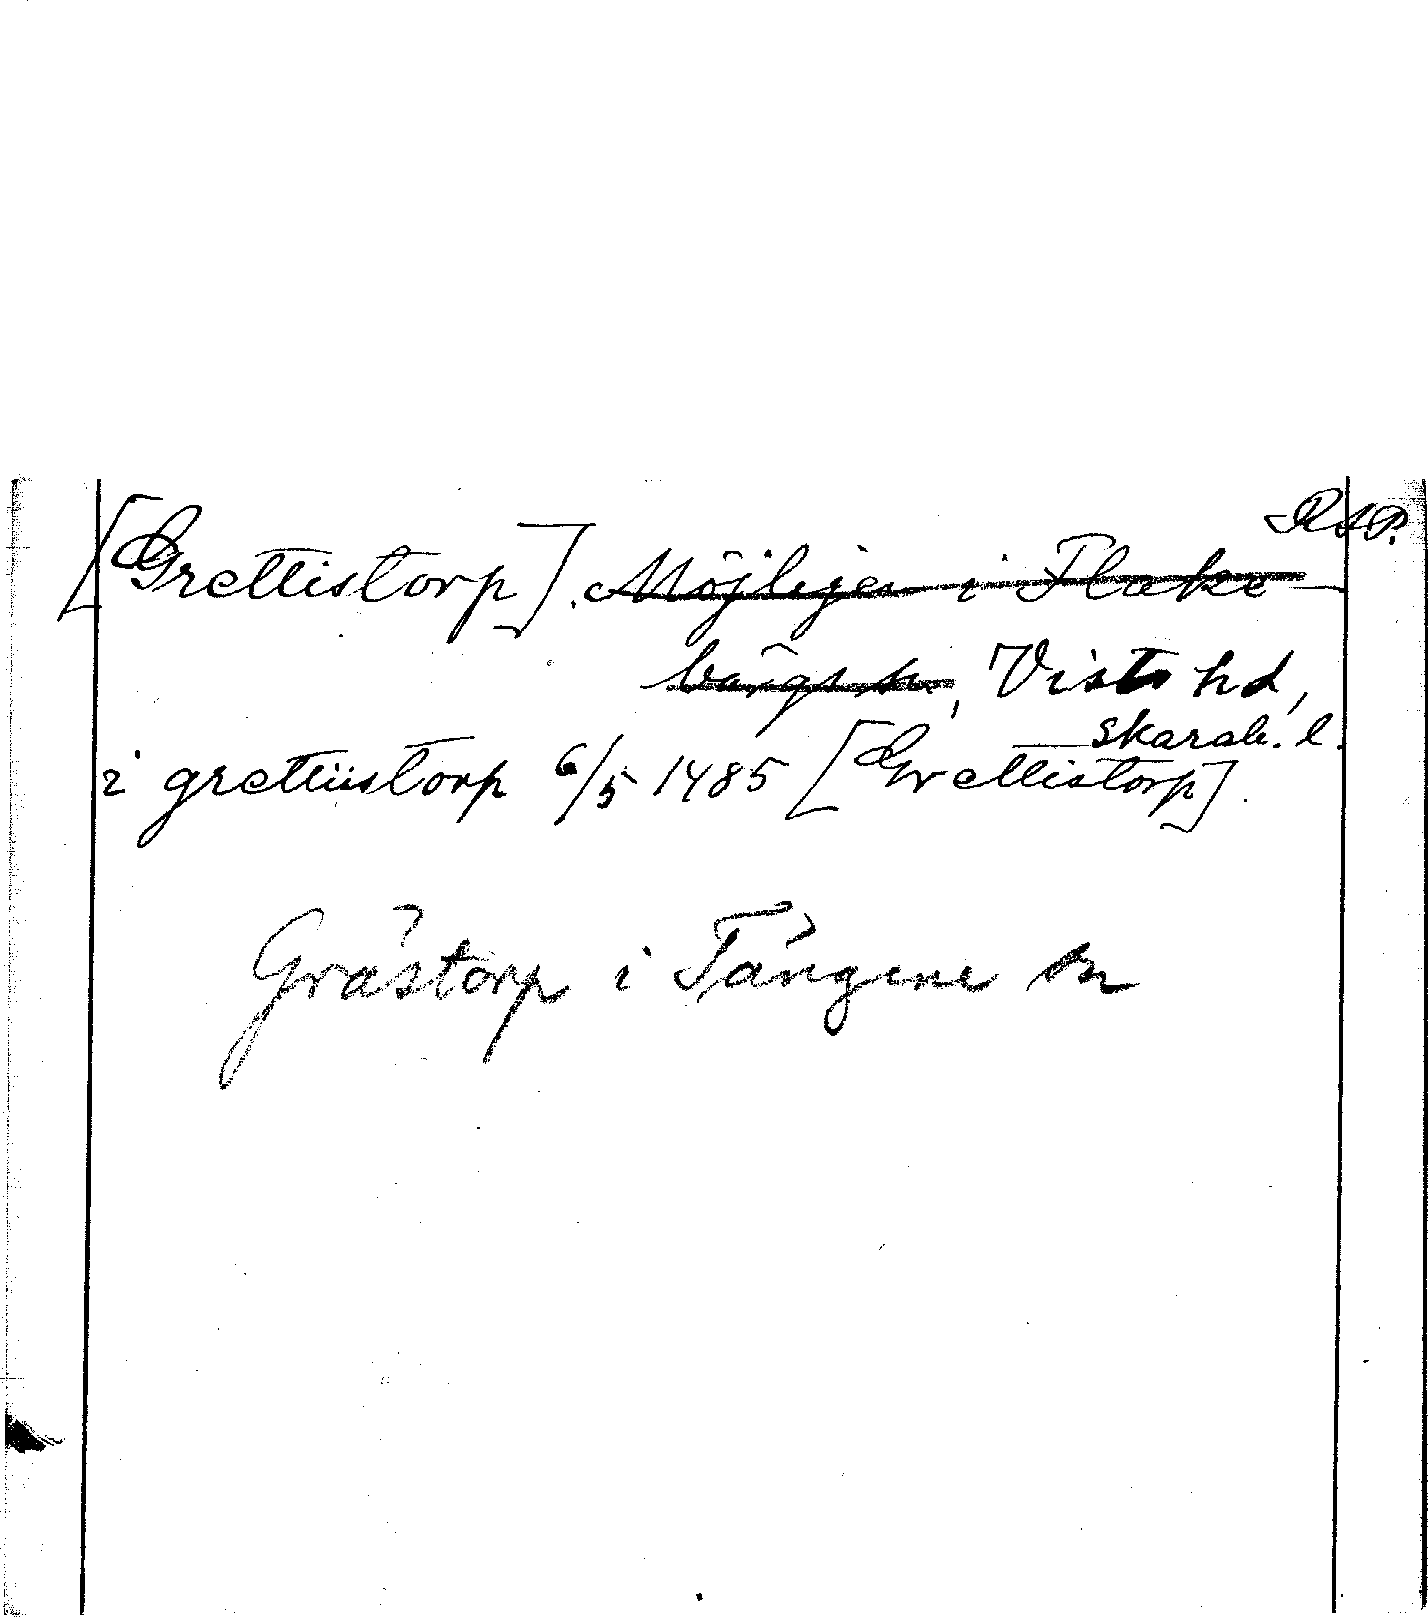 RAP.
[Grettistorp]. Möjligen i Flake-
bärgs sn, Viste hd,
Skarab. l.
i grettiistorp 6/5 1485 [Grettistorp].
Grästorp i Tängene sn